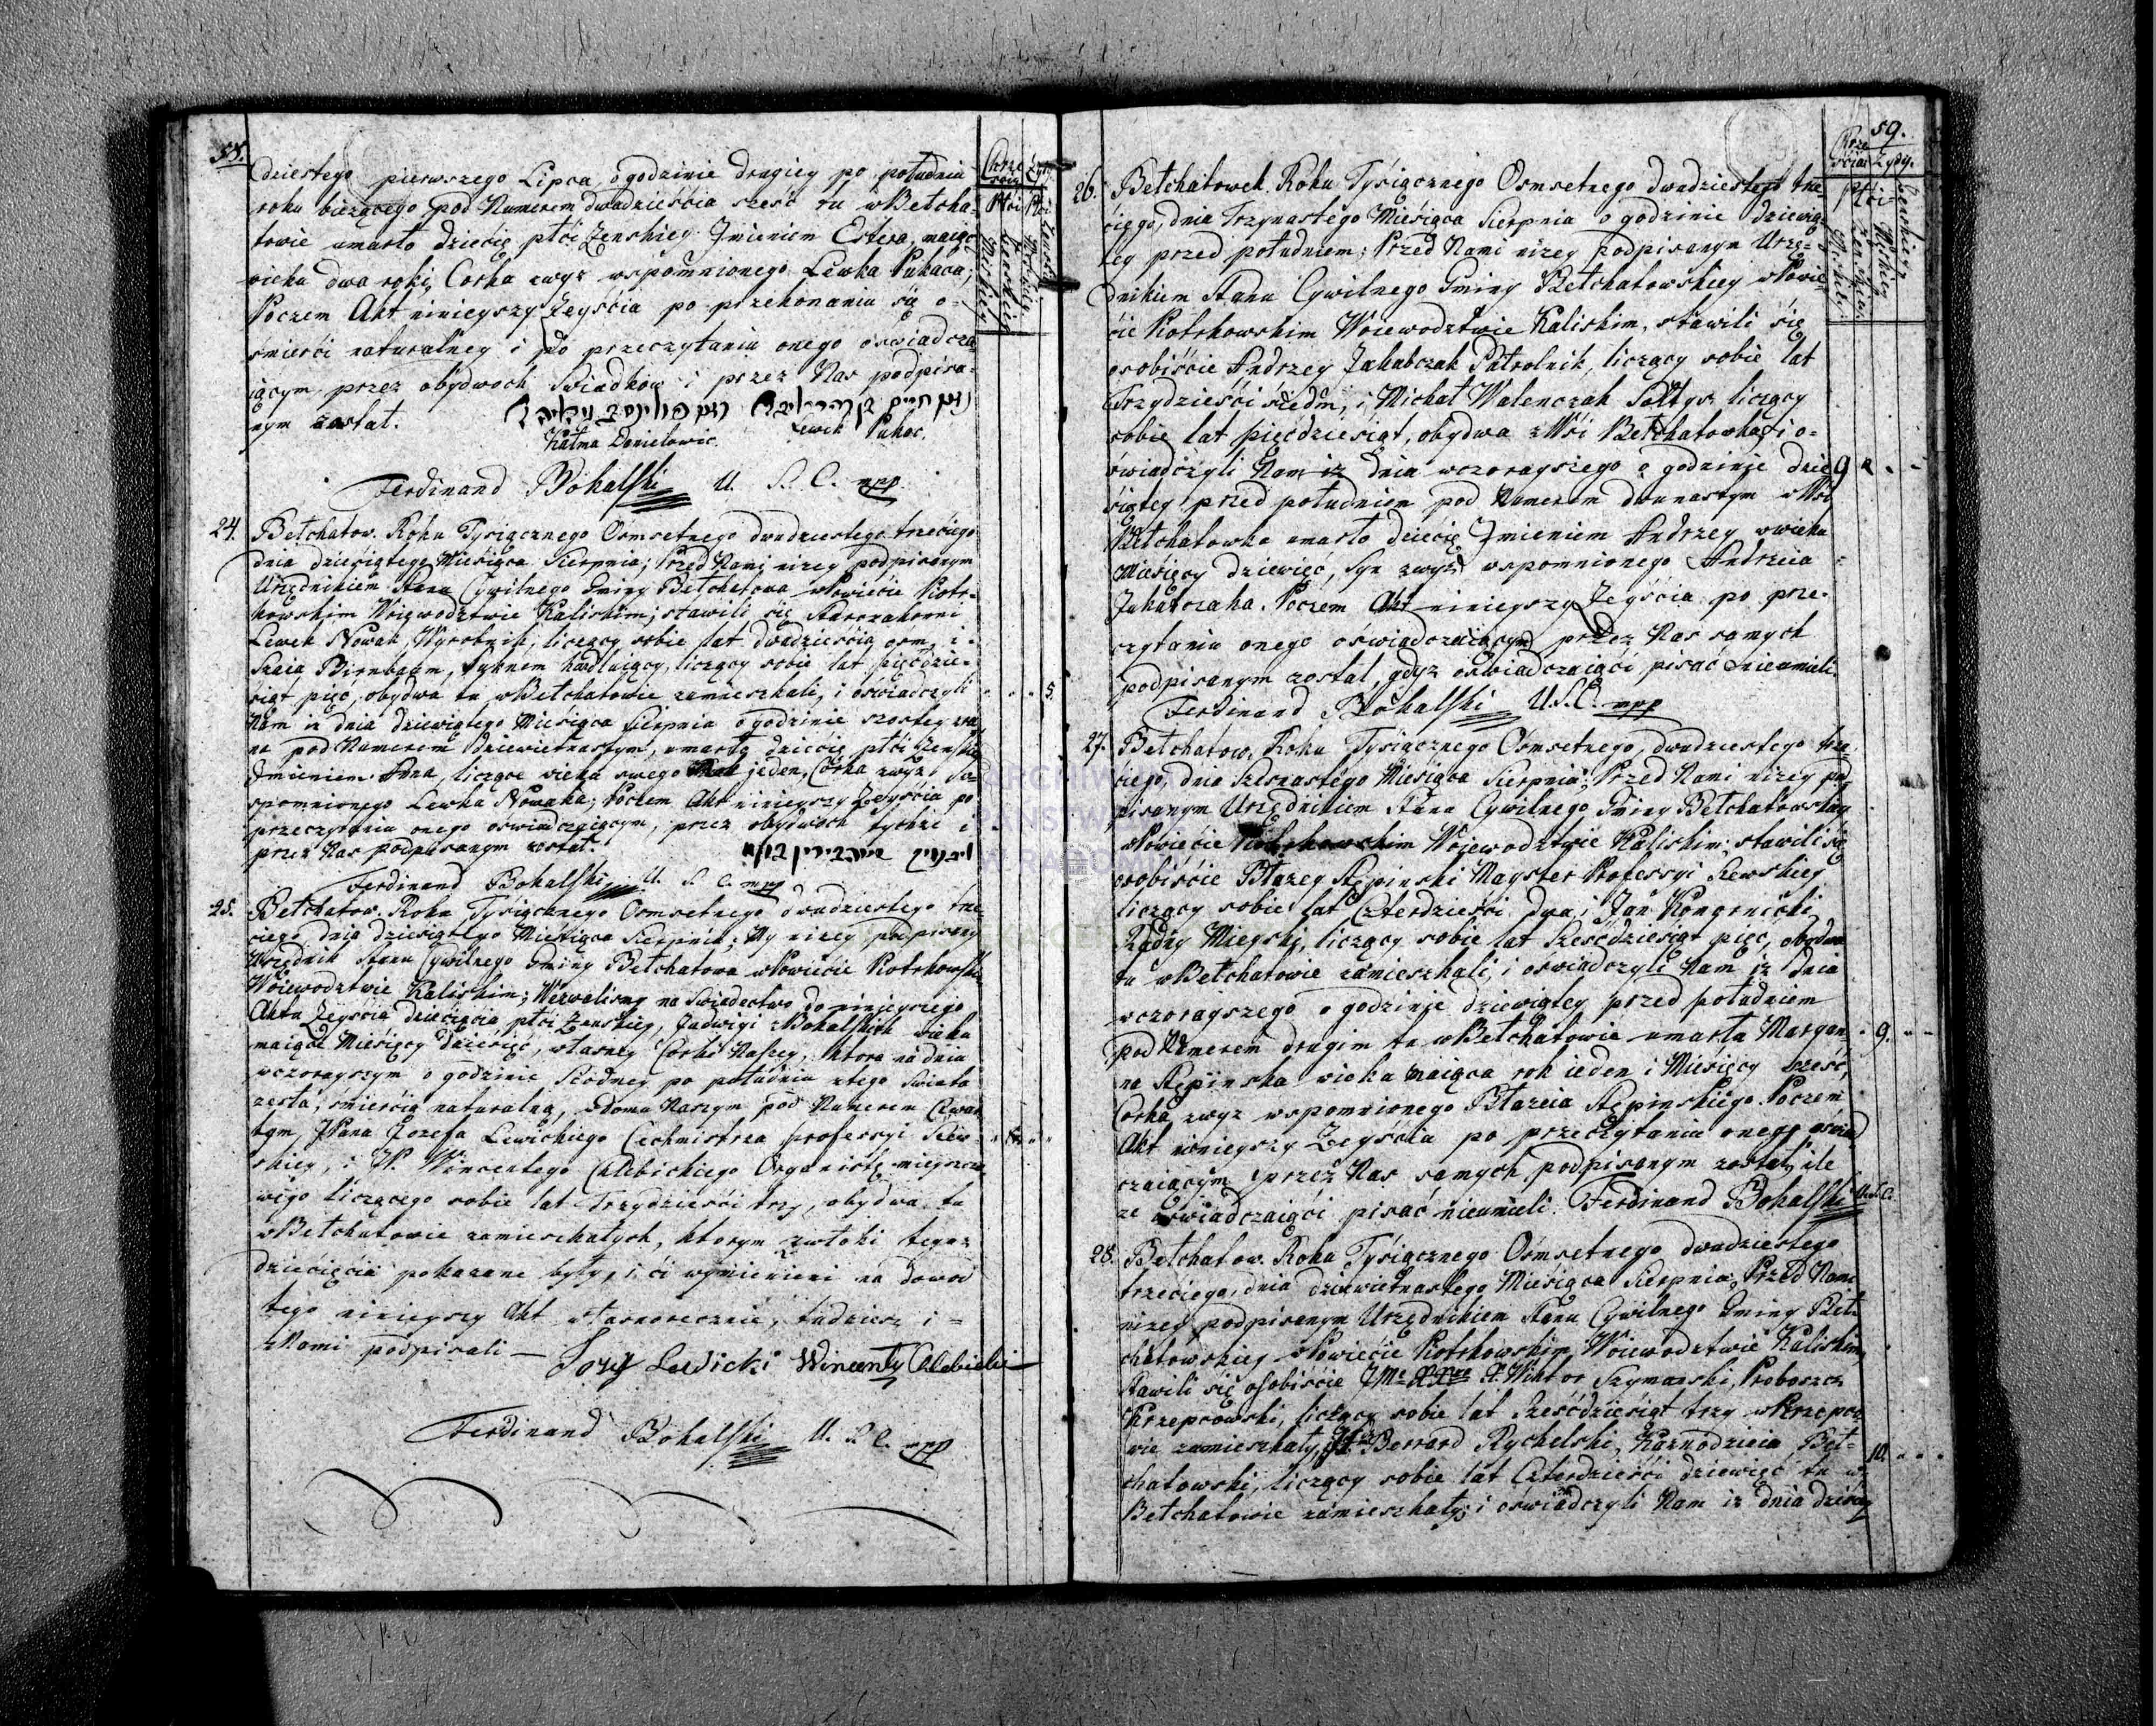 58.
Chrze Żyd.
ścia.
Płci Płci
Męskiey
Żenskiey
dziestego pierwszego Lipca o godzinie drugiey po południu
roku bieżącego pod Numerem dwadzieścia sześć tu w Bełcha-
towie umarło dziecię płci Żenskiey Imieniem Estera, maiące
wieku dwa roki, Corka zwyz wspomnionego Lewka Pukaca;
Poczem Akt ninieyszy Zeyścia po przekonaniu się o-
śmierci naturalney i po przeczytaniu onego oświadcza-
iącym, przez obydwoch Swiadkow i przez Nas podpisa-
nym został.
Kałma Danielowic. Lewek Pukac.
Ferdinand Bohalski U. S. C. mpp
24. Bełchatow. Roku Tysiącznego Osmsetnego dwudziestego trzeciego
dnia dziesiątego Miesiąca Sierpnia; Przed Nami nizey podpisanym
Urzędnikiem Stanu Cywilnego Gminy Bełchatowa w Powiecie Piotr-
kowskim Woiewodztwie Kaliskim; stawili się Starozakonni
Lewek Nowak, Wyrobnik, liczący sobie lat dwadzieścia osm, i
Szaia Birnbaum, suknem handluiący, liczący sobie lat pięćdzie-
siąt pięć, obydwa tu w Bełchatowie zamieszkali, i oświadczyli
Nam iz dnia dziewiątego Miesiąca Sierpnia o godzinie szostey zra-
na pod Numerem dziewietnastym, umarło dziecię płci Żenskiey
Imieniem liczące wieku swego jeden, Corka zwyz
spomnionego Lewka Nowaka; Poczem Akt ninieyszy Zeyścia po
przeczytaniu onego oświadczaiącym, przez obydwoch tychze i
przez Nas podpisanym został.
5.
Ferdinand Bohalski U. S. C. mpp
25. Bełchatow. Roku Tysiącznego Osmsetnego dwudziestego trze-
ciego dnia dziesiątego Miesiąca Sierpnia; My nizey podpisany
Urzędnik Stanu Cywilnego Gminy Bełchatowa w Powiecie Piotrkowskim
Woiewodztwie Kaliskim; Wezwalismy na Swiadectwo do ninieyszego
Aktu Zeyścia dziecięcia płci Żenskiey, Jadwigi z Bohalskich wieku
maiące Miesięcy dziesięć, własney Corki Naszey, ktora na dniu
wczorayszym o godzinie Siodmey po południu z tego Swiata
zeszła, smiercią naturalną, w Domu Naszym pod Numerem Czwar-
tym, JPana Jozefa Lewickiego Cechmistrza professyi Szew-
skiey, i JP. Wincentego Chlebickiego Organistę mieysco-
wego liczącego sobie lat Trzydzieści trzy, obydwa tu
w Bełchatowie zamieszkałych, ktorym zwłoki tegoz
dziecięcia pokazane były, i ci wymienieni na dowod
tego ninieyszy Akt własnorecznie, tudziesz i =
z Nami podpisali — Jozef Lewicki Wincenty Chlebicki
Ferdinand Bohalski U. S. C. mpp
59.
Chrze
ścia. Żydy.
Płci
Żenskiey
Męskiey
26. Bełchatowek. Roku Tysiącznego Osmsetnego dwudziestego trze-
ciego, dnia Trzynastego Miesiąca Sierpnia o godzinie dziewią-
tey przed południem; Przed Nami nizey podpisanym Urzę-
dnikiem Stanu Cywilnego Gminy Bełchatowskiey w Powie-
cie Piotrkowskim Woiewodztwie Kaliskim, stawili się
osobiście Andrzey Jakubczak Pułrolnik, liczący sobie lat
Trzydzieści siedm, i Michał Walenczak Sołtys liczący
sobie lat pięćdziesiąt, obydwa z Wsi Bełchatowka, i o-
świadczyli Nam iz dnia wczorayszego o godzinie dzie-
siątey przed południem pod Numerem dwunastym w Wsi
Bełchatowku umarło dziecię Imieniem Andrzey w wieku
Miesięcy dziewięć, Syn zwyz wspomnionego Andrzeia
Jakubczaka. Poczem Akt ninieyszy Zeyścia po prze-
czytaniu onego oświadczaiącym przez Nas samych
podpisanym został, gdyz oświadczaiąci pisać nieumieli.
9
Ferdinand Bohalski U. S. C. mpp
27. Bełchatow. Roku Tysiącznego Osmsetnego, dwudziestego trze-
ciego, dnia Szesnastego Miesiąca Sierpnia; Przed Nami nizey pod-
pisanym Urzędnikiem Stanu Cywilnego Gminy Bełchatowskiey
w Powiecie Piotrkowskim Woiewodztwie Kaliskim: stawili się
osobiście Błazey Stępinski Mayster Professyi Szewskiey
liczący sobie lat Czterdzieści dwa, i Jan
Radny Mieyski, liczący sobie lat Sześćdziesiąt pięć, obydwa
tu w Bełchatowie zamieszkali, i oświadczyli Nam iz dnia
wczorayszego o godzinie dziewiątey przed południem
pod Numerem drugim tu w Bełchatowie umarła Maryan-
na Stępinska wieku maiąca rok ieden i Miesięcy sześć,
Corka zwyz wspomnionego Błazeia Stępinskiego. Poczem
Akt ninieyszy Zeyścia po przeczytaniu onego oświad-
czaiącym przez Nas samych podpisanym został, ile
ze oświadczaiąci pisać nieumieli. Ferdinand Bohalski U. S. C.
9.
28. Bełchatow. Roku Tysiącznego Osmsetnego dwudziestego
trzeciego, dnia dziewietnastego Miesiąca Sierpnia, Przed Nami
nizey podpisanym Urzędnikiem Stanu Cywilnego Gminy Beł-
chatowskiey w Powiecie Piotrkowskim Woiewodztwie Kaliskim
stawili się osobiście X. Wiktor Szymanski, Proboszcz
Krzepczowski, liczący sobie lat Sześćdziesiąt trzy w Krzepczo-
wie zamieszkały, Bernard Rychelski, Kaznodzieia Beł-
chatowski, liczący sobie lat Czterdzieści dziewięć tu w
Bełchatowie zamieszkały; i oświadczyli Nam iz dnia
10.